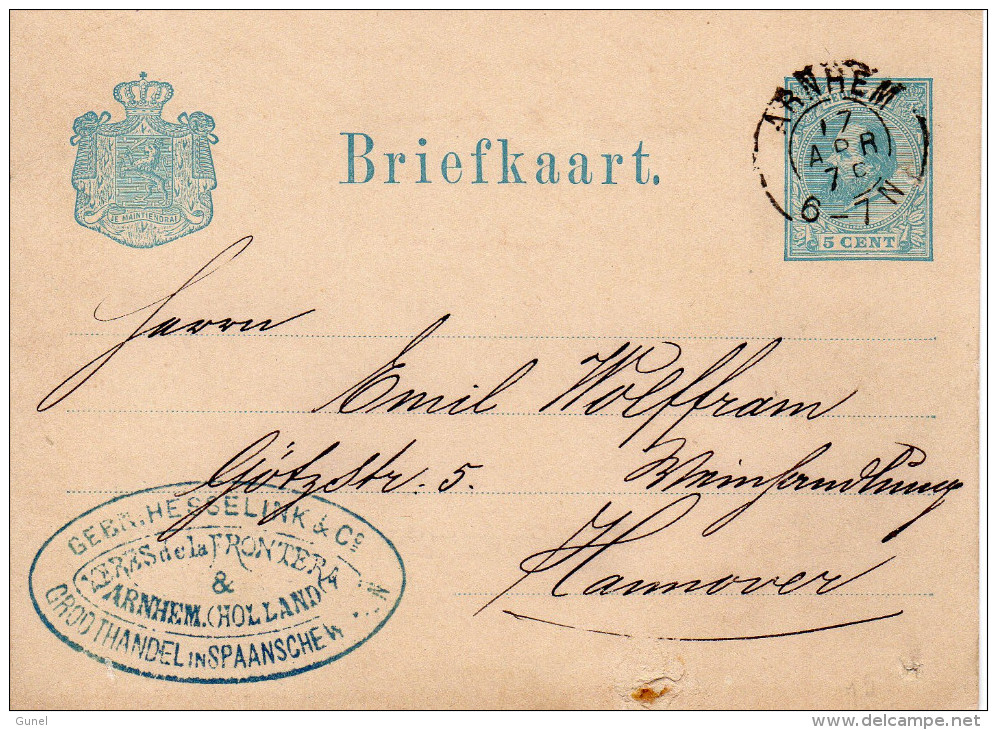 Briefkaart.
JE MAINTIENDRAI
ARNHEM
17
APR
6-7 N
5 CENT
Herrn
Emil Wolffram
Götzstr. 5. Weinhandlung
Hannover
GEBR. HESSELINK & Co
XERES de la FRONTERA
&
ARNHEM. (HOLLAND)
GROOTHANDEL IN SPAANSCHE
Gunel
delcampe.net